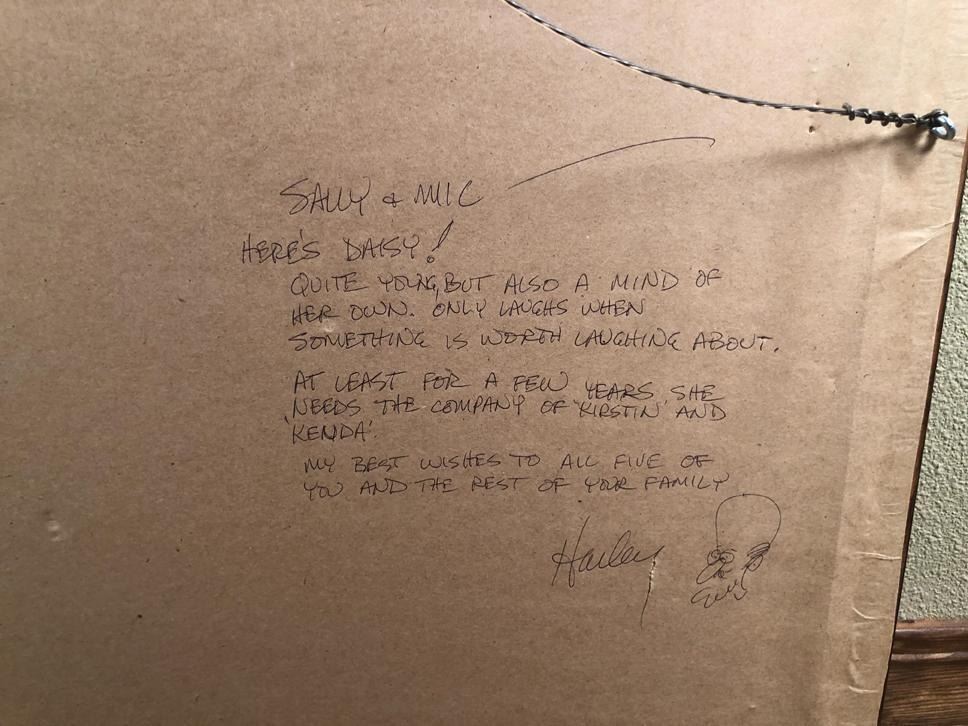 SALLY & MIC
HERE'S DAISY!
QUITE YOUNG, BUT ALSO A MIND OF
HER OWN. ONLY LAUGHS WHEN
SOMETHING IS WORTH LAUGHING ABOUT.
AT LEAST FOR A FEW YEARS SHE
NEEDS THE COMPANY OF 'KIRSTIN' AND
'KENDA'.
MY BEST WISHES TO ALL FIVE OF
YOU AND THE REST OF YOUR FAMILY
Harley